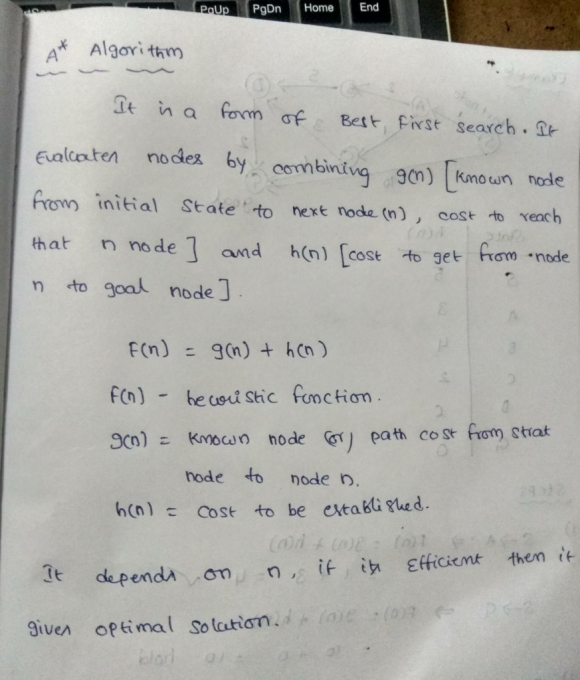 PgUp PgDn Home End
A* Algorithm
It is a form of Best, First search. It
Evalcaten nodes by combining g(n) [Known node
from initial State to next node (n), cost to reach
that n node] and h(n) [cost to get from node
n to goal node].
F(n) = g(n) + h(n)
F(n) - hecoristic function.
g(n) = Known node (or) path cost from strat
node to node n.
h(n) = cost to be established.
It depends on n, if it is Efficient then it
given optimal solution.